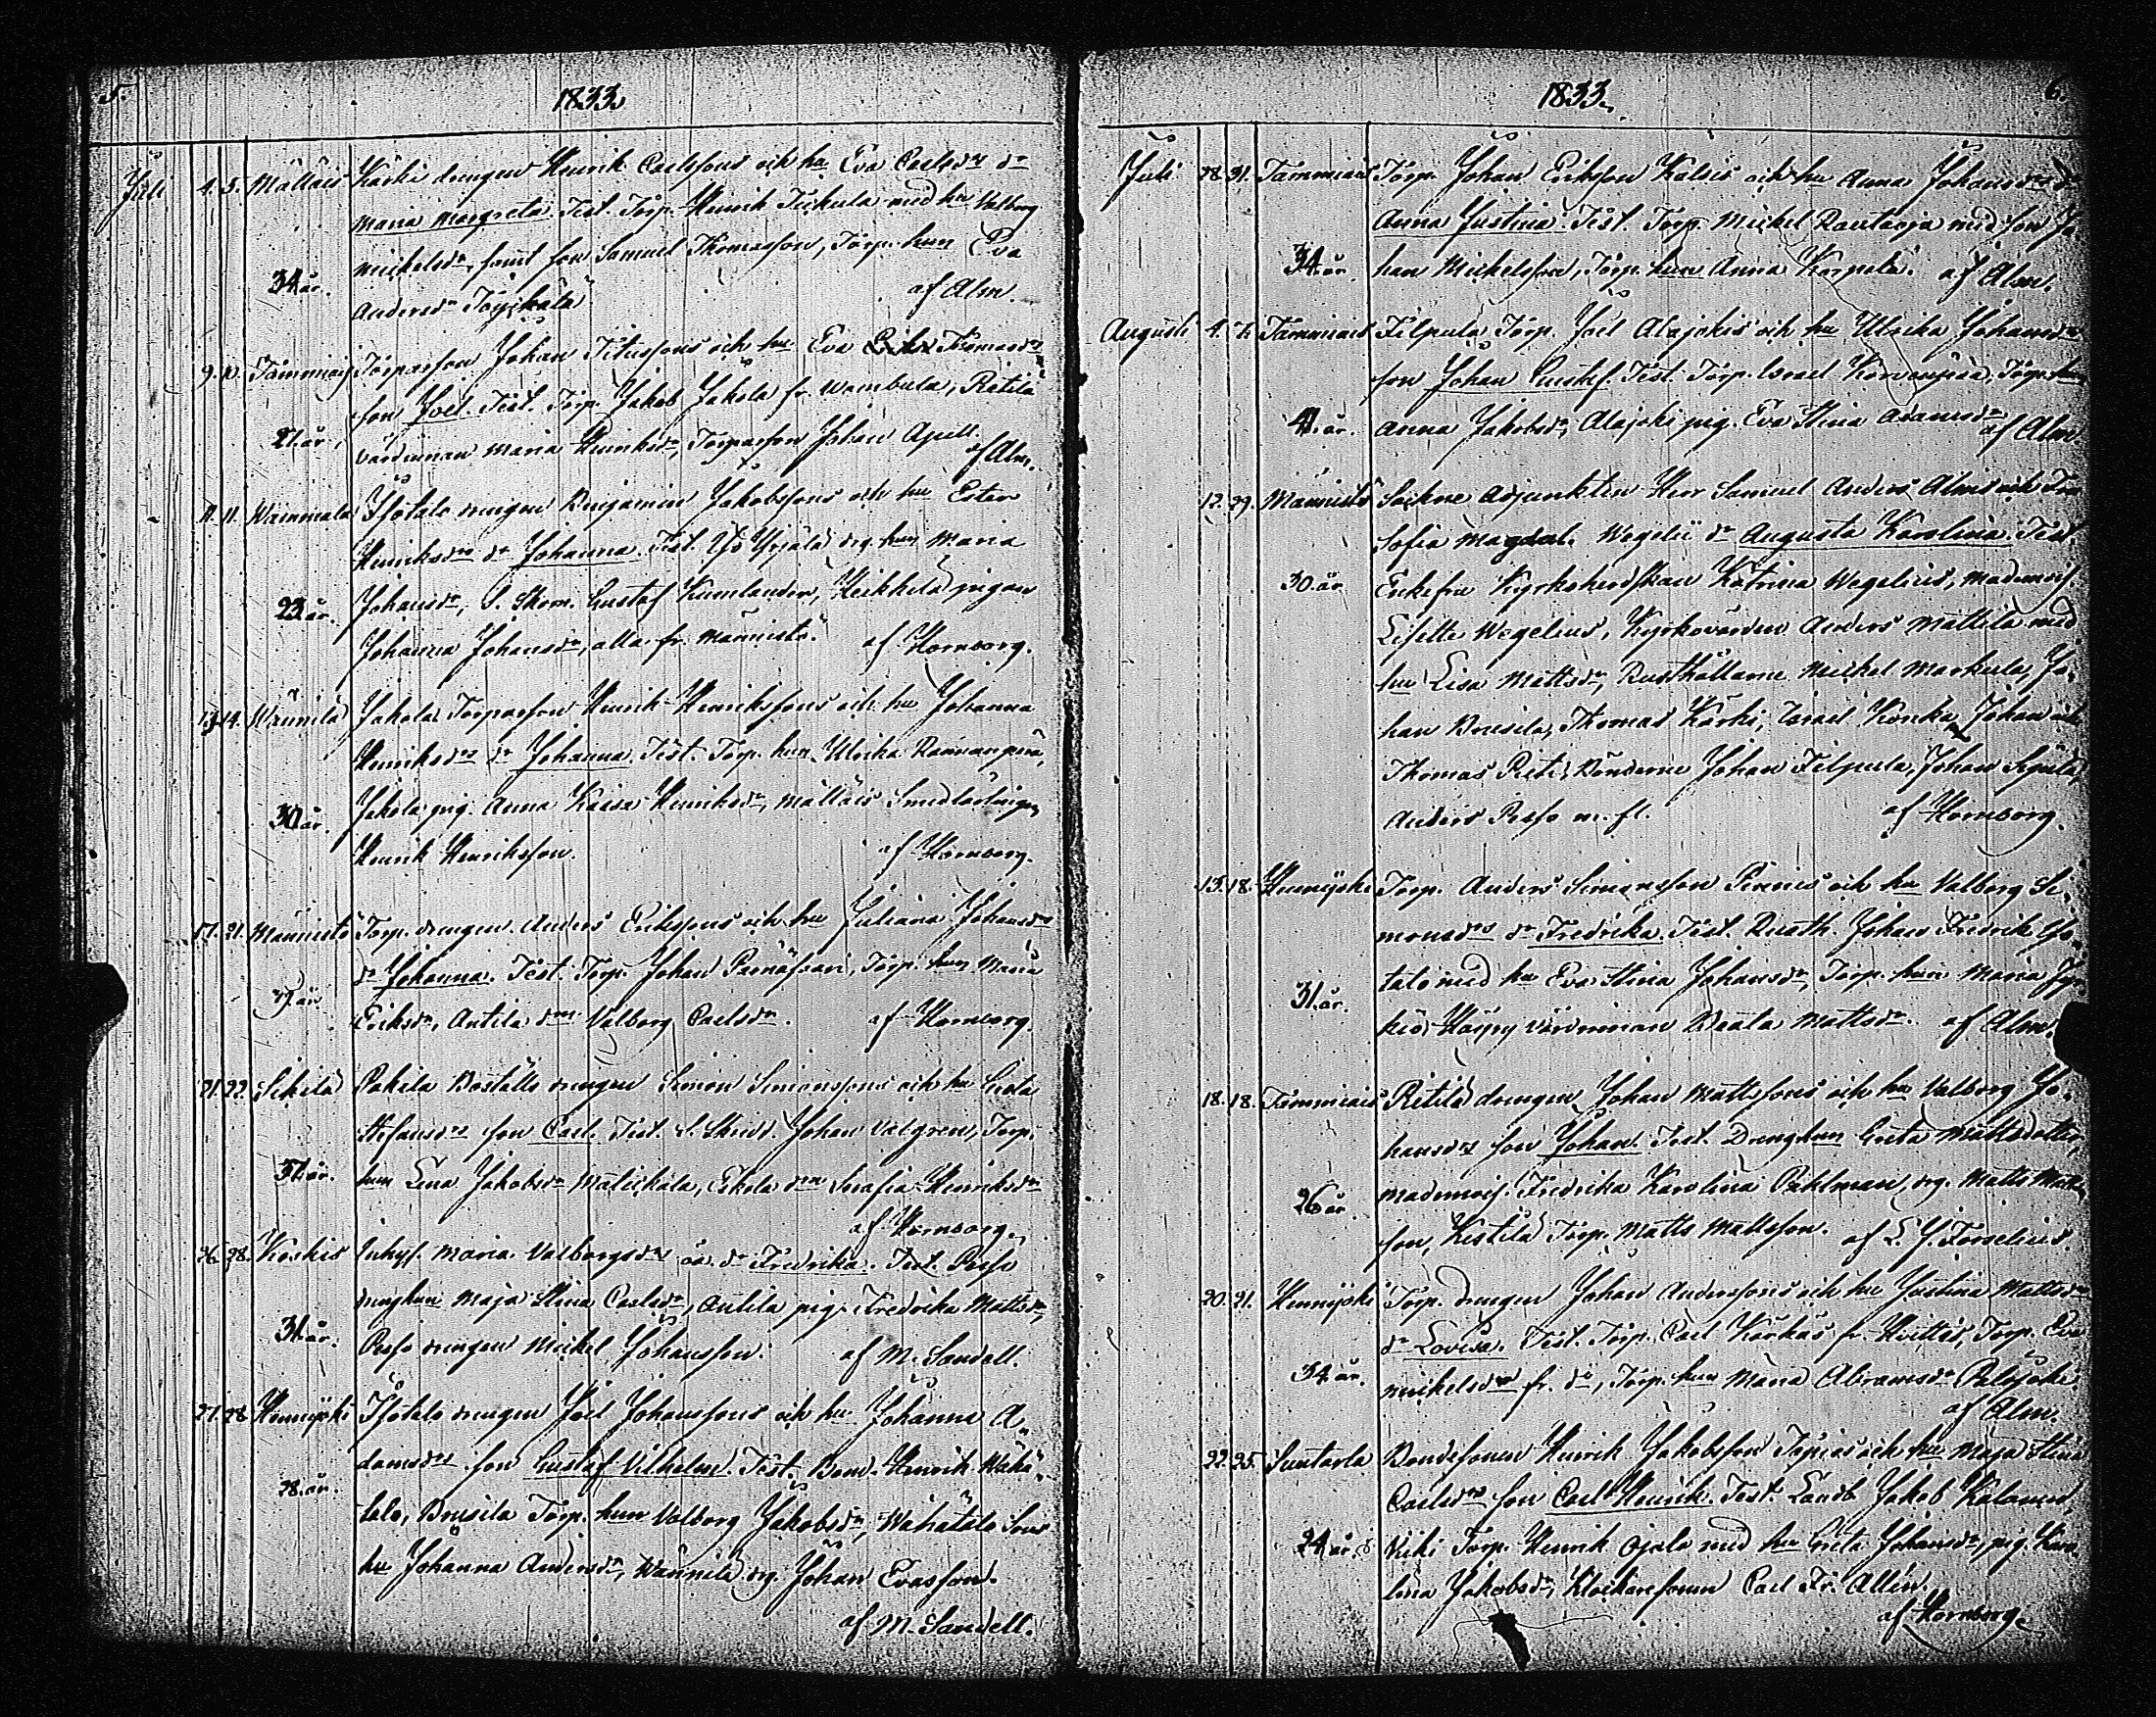 5.
1833.
Juli 4. 5. Mälläis Kärki drengen Henrik Carlssons och hu Eva Carlsdrs dr
Maria Margreta. Test. Torp. Henrik Tickula med hu Valborg
Michelsdr, samt son Samuel Thomasson, Torp. hun Eva
34 år. Andersdr Töyskälä af Alm.
9. 10. Tammiais Torparson Johan Titussons och hu Eva Thomasdrs
son Joel. Test. Torp. Jakob Jakola fr. Wambula, Ritila
21. år. värdinnan Maria Henriksdr, Torparson Johan Apell.
af Alm.
11. 11. Wammala Isotalo drengen Benjamin Jakobssons och hu Ester
Henriksdrs dr Johanna. Test. Yrjälä drg. hun Maria
23 år. Johansdr, S. Skom. Gustaf Kumlander, Heikkilä pigan
Johanna Johansdr, alla fr. Männistö. af Hornborg.
13. 14. Wännilä Jakola Torparson Henrik Henrikssons och hu Johanna
Henriksdrs dr Johanna. Test. Torp. hun Ulrika
30 år. Jakola pig. Anna Kaisa Henriksdr, Mälläis Smedlärlingen
Henrik Henriksson. af Hornborg.
17. 21. Männistö Torp. drengen Anders Erikssons och hu Juliana Johansdrs
dr Johanna. Test. Torp. Johan Torp. hun Maria
år Eriksdr, Antila drn Valborg Carlsdr. af Hornborg.
21. 22. Sikilä Pakila Boställs drengen Simon Simonssons och hu Greta
Stefansdrs son Carl. Test. S. Skrd. Johan Valgren, Torp.
år. hun Lena Jakobsdr Eskola Serafia Henriksdr
af Hornborg.
26. 28. Köskis Inhys. Maria Valborgsdrs oä. dr Fredrika. Test. Perho
drenghun Maja Stina Carlsdr, Antila pig. Fredrika Mattsdr,
31. år. Perho drengen Michel Johansson. af M. Sandell.
27. 28. Hennijoki Isotalo drengen Joel Johanssons och hu Johanna A,
damsdrs son Gustaf Vilhelm. Test. Bond. Henrik Wähä,
28. år. talo, Brusila Torp. hun Valborg Jakobsdr, Wähätalo sons
hu Johanna Andersdr, Wännilä drg. Johan Evasson.
af M. Sandell.
1833.
6.
Juli 28. 31. Tammiais Torp. Johan Eriksson Kalsis och hu Anna Johansdrs dr
Anna Justina. Test. Torp. Michel Rautaoja med son Jo
34. år. han Michelsson, Torp. hun Anna Korpela. af Alm.
Augusti 4. Tammiais Filpula Torp. Joel Alajokis och hu Ulrika Johansdrs
son Johan Gustaf. Test. Torp. Israel Korvanpää, Torp. hu
41. år. Anna Jakobsdr, Alajoki pig. Eva Stina Adamsdr
af Alm.
12. 29. Männistö Sockne Adjunkten Herr Samuel Anders Alms och Fru
Sofia Magdal. Wegelii dr Augusta Karolina. Test.
30. år Enkefru Kyrkoherdskan Katrina Wegelius, Mademois.
Lisette Wegelius, Kyrkovärden Anders Mattila med
hu Lisa Mattsdr, Rusthållarne Michel Markula, Jo,
han Brusila, Thomas Kärki, Israel Könka, Johan och
Thomas Rieti, Bönderne Johan Filpula, Johan Sipilä,
Anders Perho m. fl. af Hornborg.
13. 18. Hennijoki Torp. Anders Simonsson Pennis och hu Valborg Si,
monsdrs dr Fredrika. Test. Rusth. Johan Fredrik Iso,
31. år. talo med hu Eva Stina Johansdr, Torp. hun Maria
värdinnan Beata Mattsdr. af Alm.
18. 18. Tammiais Ritilä drengen Johan Mattssons och hu Valborg Jo,
hansdrs son Johan. Test. Drenghun Greta Mattsdotter,
26 år. Mademois. Fredrika Karolina Pahlman, drg. Matts Matts
son, Kestilä Torp. Matts Mattsson. af L. J. Forselius.
20. 21. Hennijoki Torp. drengen Johan Anderssons och hu Justina Mattsdrs
dr Lovisa. Test. Torp. Carl Kärkäs fr. Hvittis, Torp. Eva
34 år. Michelsdr fr. do, Torp. hun Maria Abramsdr Palojoki.
af Alm.
22. 25. Suntarla Bondesonen Henrik Jakobsson och hu Maja Stina
Carlsdrs son Carl Henrik. Test. Landb. Jakob
24 år. Torp. Henrik Ojala med hu Greta Johansdr, pig. Karo
lina Jakobsdr, Klockaresonen Carl Fr. Allén.
af Hornborg.